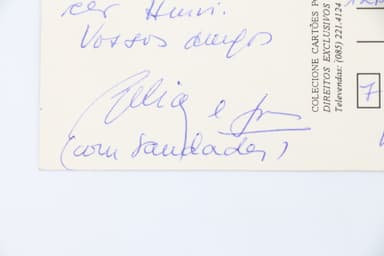 Vossos amigos
Célia e
(com saudades)
COLECIONE CARTÕES PO
DIREITOS EXCLUSIVOS
Televendas: (085) 221.4124
7